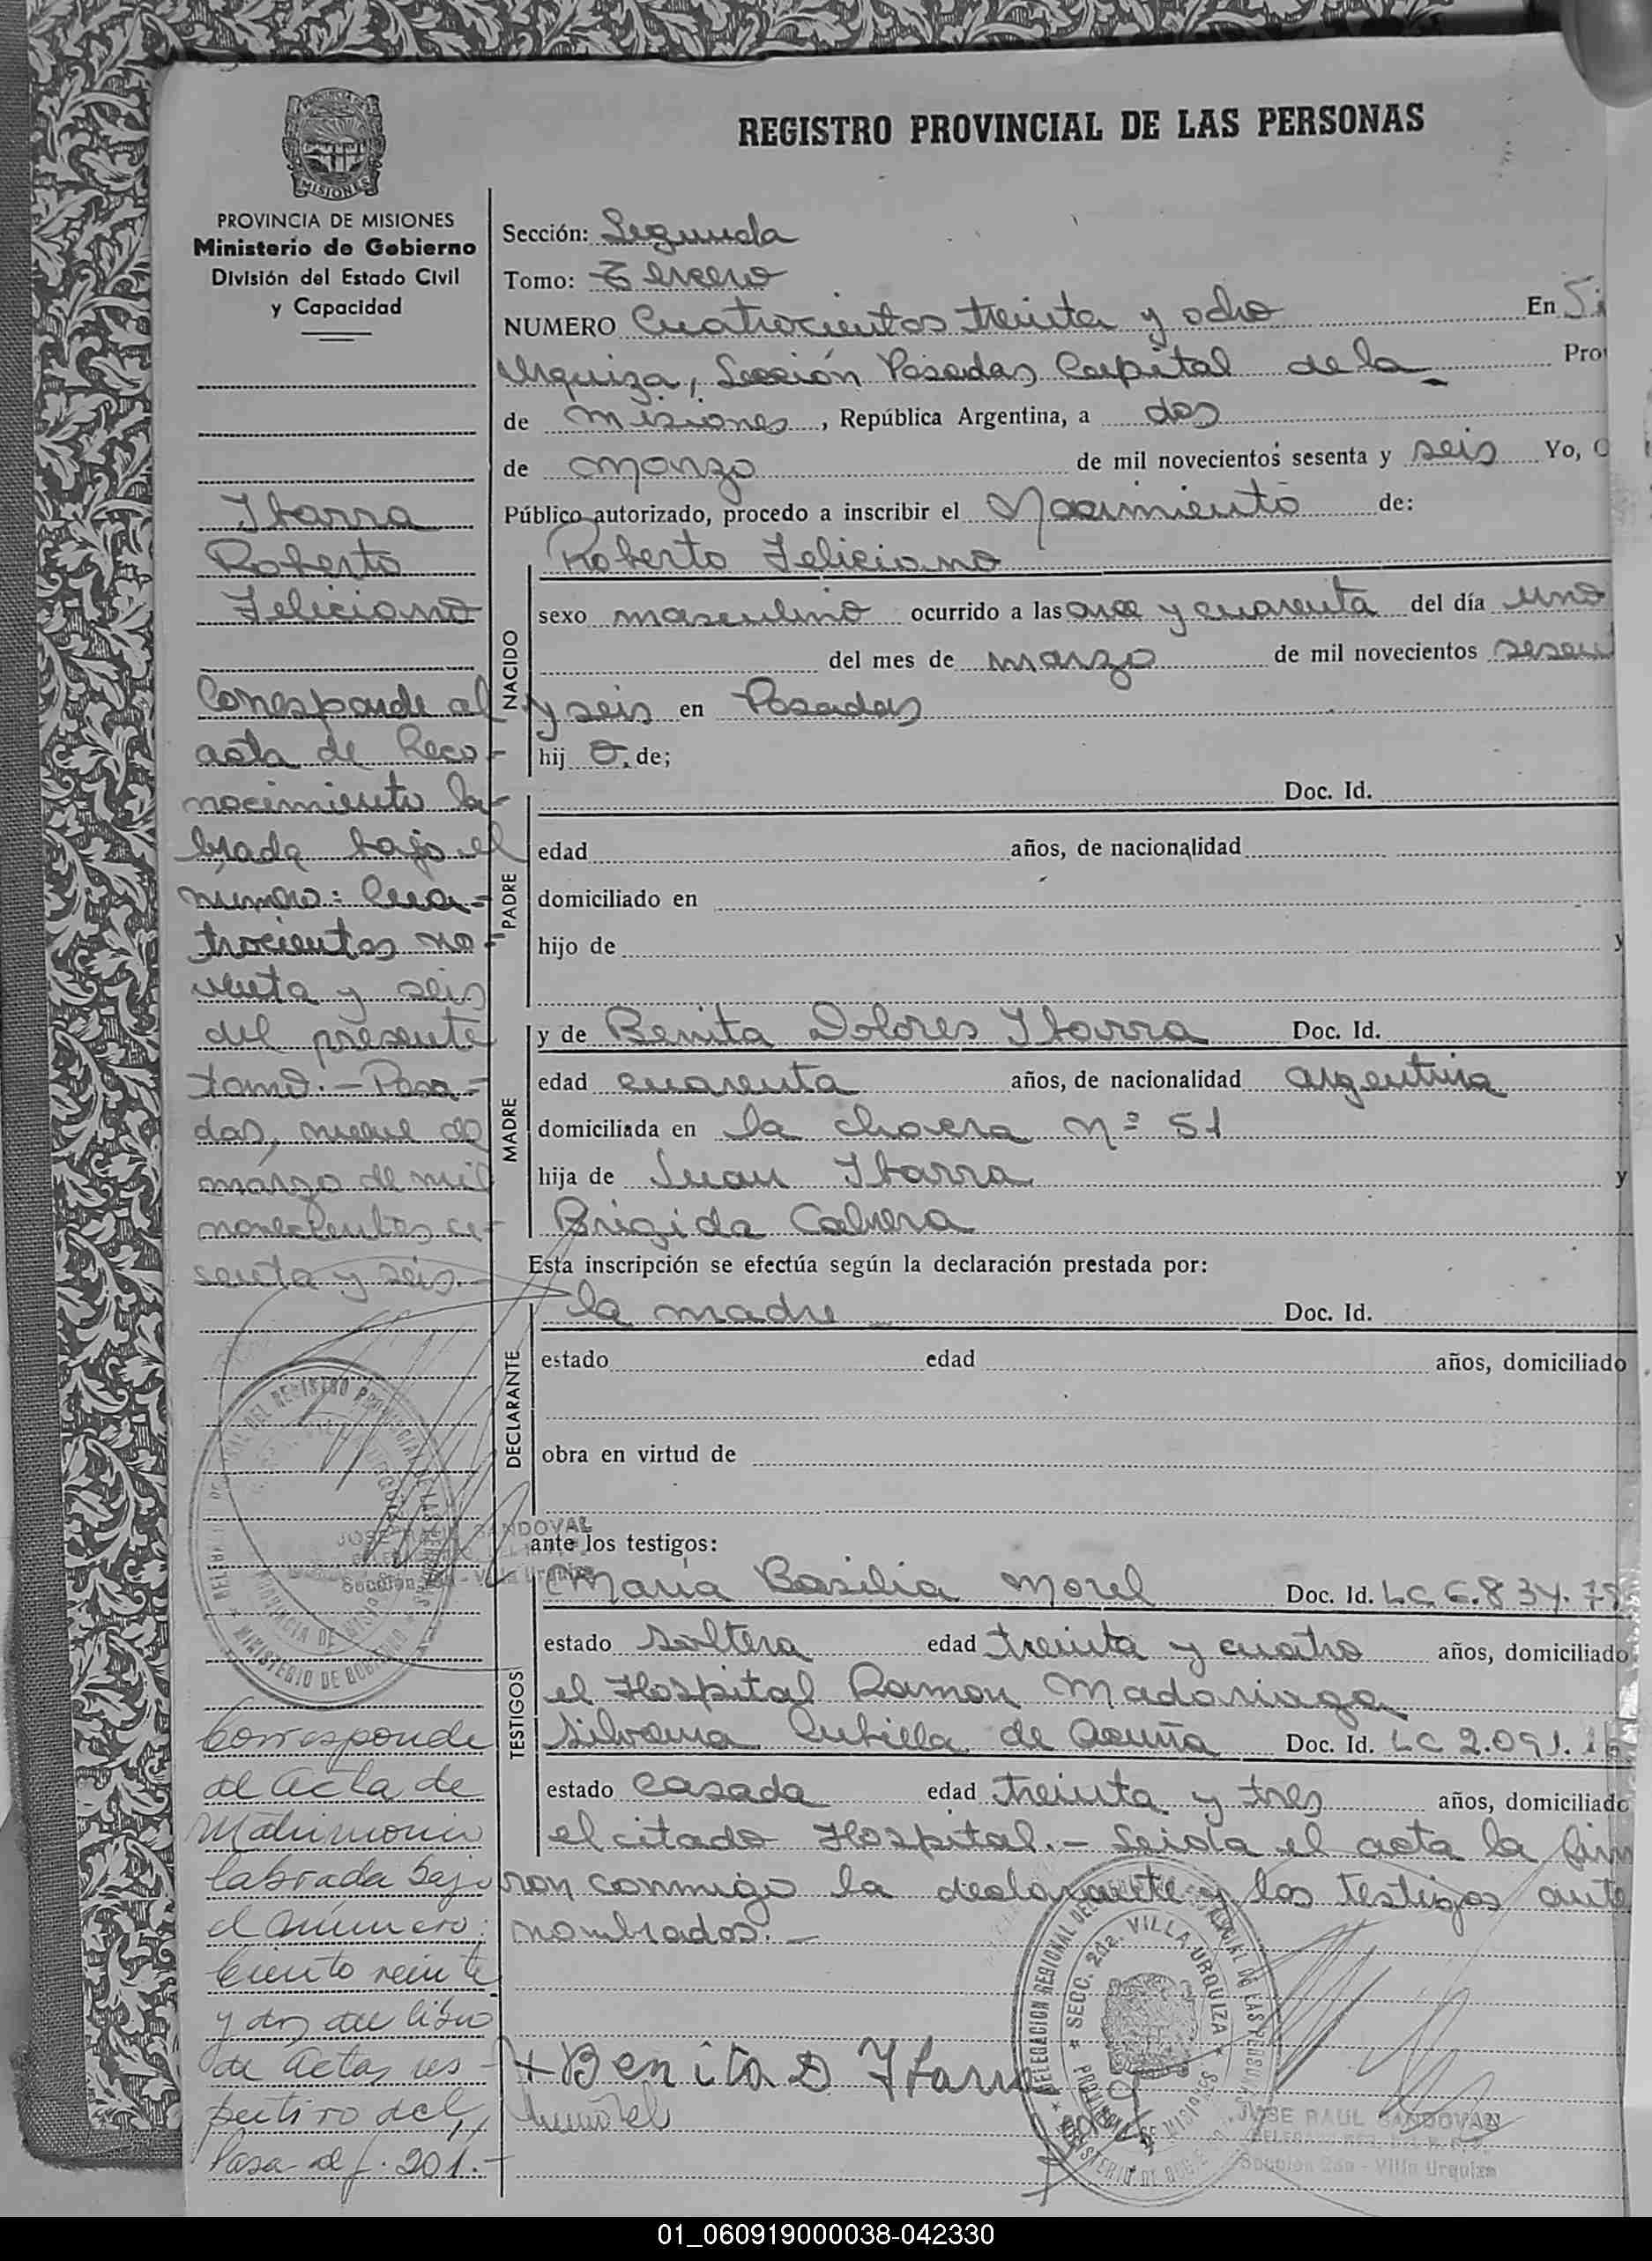 REGISTRO PROVINCIAL DE LAS PERSONAS
MISIONES
PROVINCIA DE MISIONES
Ministerio de Gobierno
División del Estado Civil
y Capacidad
Ibarra
Roberto
Feliciano
Corresponde al
acta de Reco-
nocimiento la-
brada bajo el
número: Cua-
trocientos no-
venta y seis
del presente
tomo.- Posa-
das, nueve de
marzo de mil
novecientos se-
senta y seis.-
Corresponde
al acta de
Matrimonio
labrada bajo
el número:
Ciento veinte
y dos del libro
de actas res-
pectivo del
Pasa al f. 201.-
Sección: Segunda
Tomo: Tercero
NUMERO Cuatrocientos treinta y ocho En
Urquiza, Sección Posadas Capital de la Pro
de Misiones, República Argentina, a dos
de marzo de mil novecientos sesenta y seis Yo, O
Público autorizado, procedo a inscribir el Nacimiento de:
NACIDO
Roberto Feliciano
sexo masculino ocurrido a las once y cuarenta del día uno
del mes de marzo de mil novecientos sesen
y seis en Posadas
hij o. de;
PADRE
Doc. Id.
edad años, de nacionalidad
domiciliado en
hijo de y
MADRE
y de Benita Dolores Ibarra Doc. Id.
edad cuarenta años, de nacionalidad argentina
domiciliada en la chacra nº 51
hija de Juan Ibarra y
Brigida Cabrera
Esta inscripción se efectúa según la declaración prestada por:
DECLARANTE
la madre Doc. Id.
estado edad años, domiciliado
obra en virtud de
ante los testigos:
TESTIGOS
Maria Basilia Morel Doc. Id. LC 6.834.
estado soltera edad treinta y cuatro años, domiciliado
el Hospital Ramon Madariaga
Silvana Cubilla de Acuña Doc. Id. LC 2.091.
estado casada edad treinta y tres años, domiciliado
el citado Hospital.- Leida el acta la firm
ron conmigo la declarante y los testigos ante
nombrados.-
+ Benita D Ibarra
JOSE RAUL SANDOVAL
Sección 2da - Villa Urquiza
DELEGACION REGIONAL DEL REGISTRO PROVINCIAL DE LAS PERSONAS
SECC. 2da. VILLA URQUIZA
PROVINCIA DE MISIONES
MINISTERIO DE GOBIERNO
JOSE RAUL SANDOVAL
Sección 2da - Villa Urquiza
01_060919000038-042330